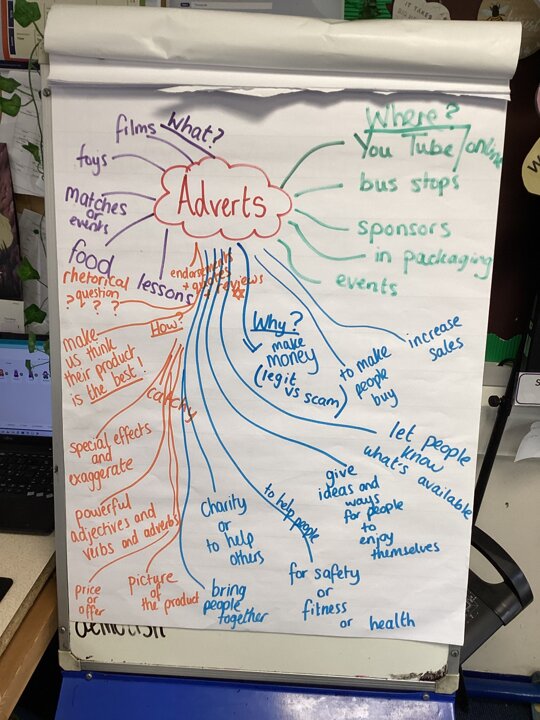 What?
films
toys
matches
or
events
food
lessons
Adverts
Where?
You Tube/online
bus stops
sponsors
in packaging
events
endorsements
+ quotes
reviews
rhetorical
? question
? ?
How?
make
us think
their product
is the best!
catchy
special effects
and
exaggerate
powerful
adjectives and
verbs and adverbs
price
or
offer
picture
of
the product
Why?
make
MONEY
(legit
vs scam)
to make
people
buy
increase
sales
let people
know
what's available
give
ideas and
ways
for people
to
enjoy
themselves
to help people
for safety
or
fitness
or health
Charity
or
to help
others
bring
people
together